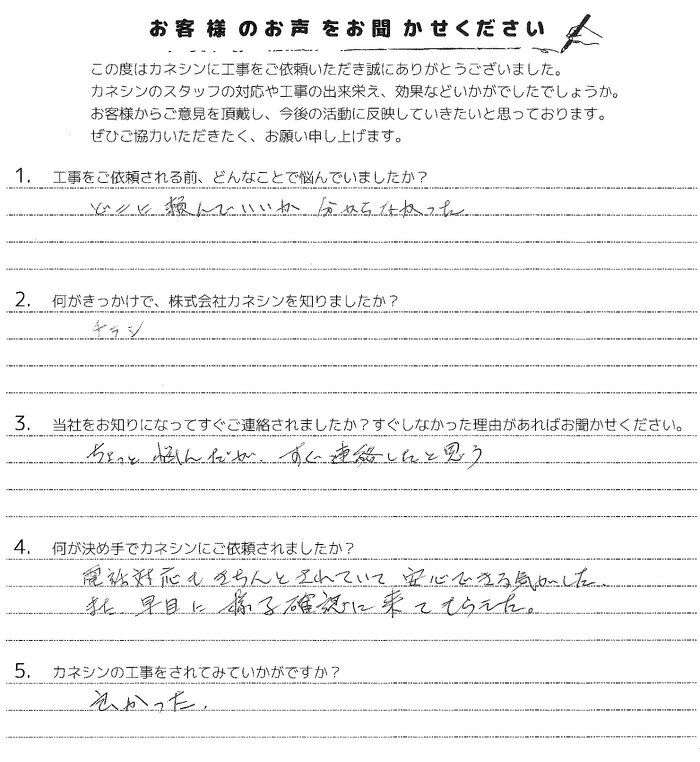 お客様のお声をお聞かせください
この度はカネシンに工事をご依頼いただき誠にありがとうございました。
カネシンのスタッフの対応や工事の出来栄え、効果などいかがでしたでしょうか。
お客様からご意見を頂戴し、今後の活動に反映していきたいと思っております。
ぜひご協力いただきたく、お願い申し上げます。
1. 工事をご依頼される前、どんなことで悩んでいましたか？
どこに頼んでいいか 分からなかった
2. 何がきっかけで、株式会社カネシンを知りましたか？
チラシ
3. 当社をお知りになってすぐご連絡されましたか？すぐしなかった理由があればお聞かせください。
ちょっと 悩んだが、すぐ連絡したと思う
4. 何が決め手でカネシンにご依頼されましたか？
電話対応もきちんとされていて 安心できる気がした。
また 早目に 様子確認に来てもらえた。
5. カネシンの工事をされてみていかがですか？
良かった。